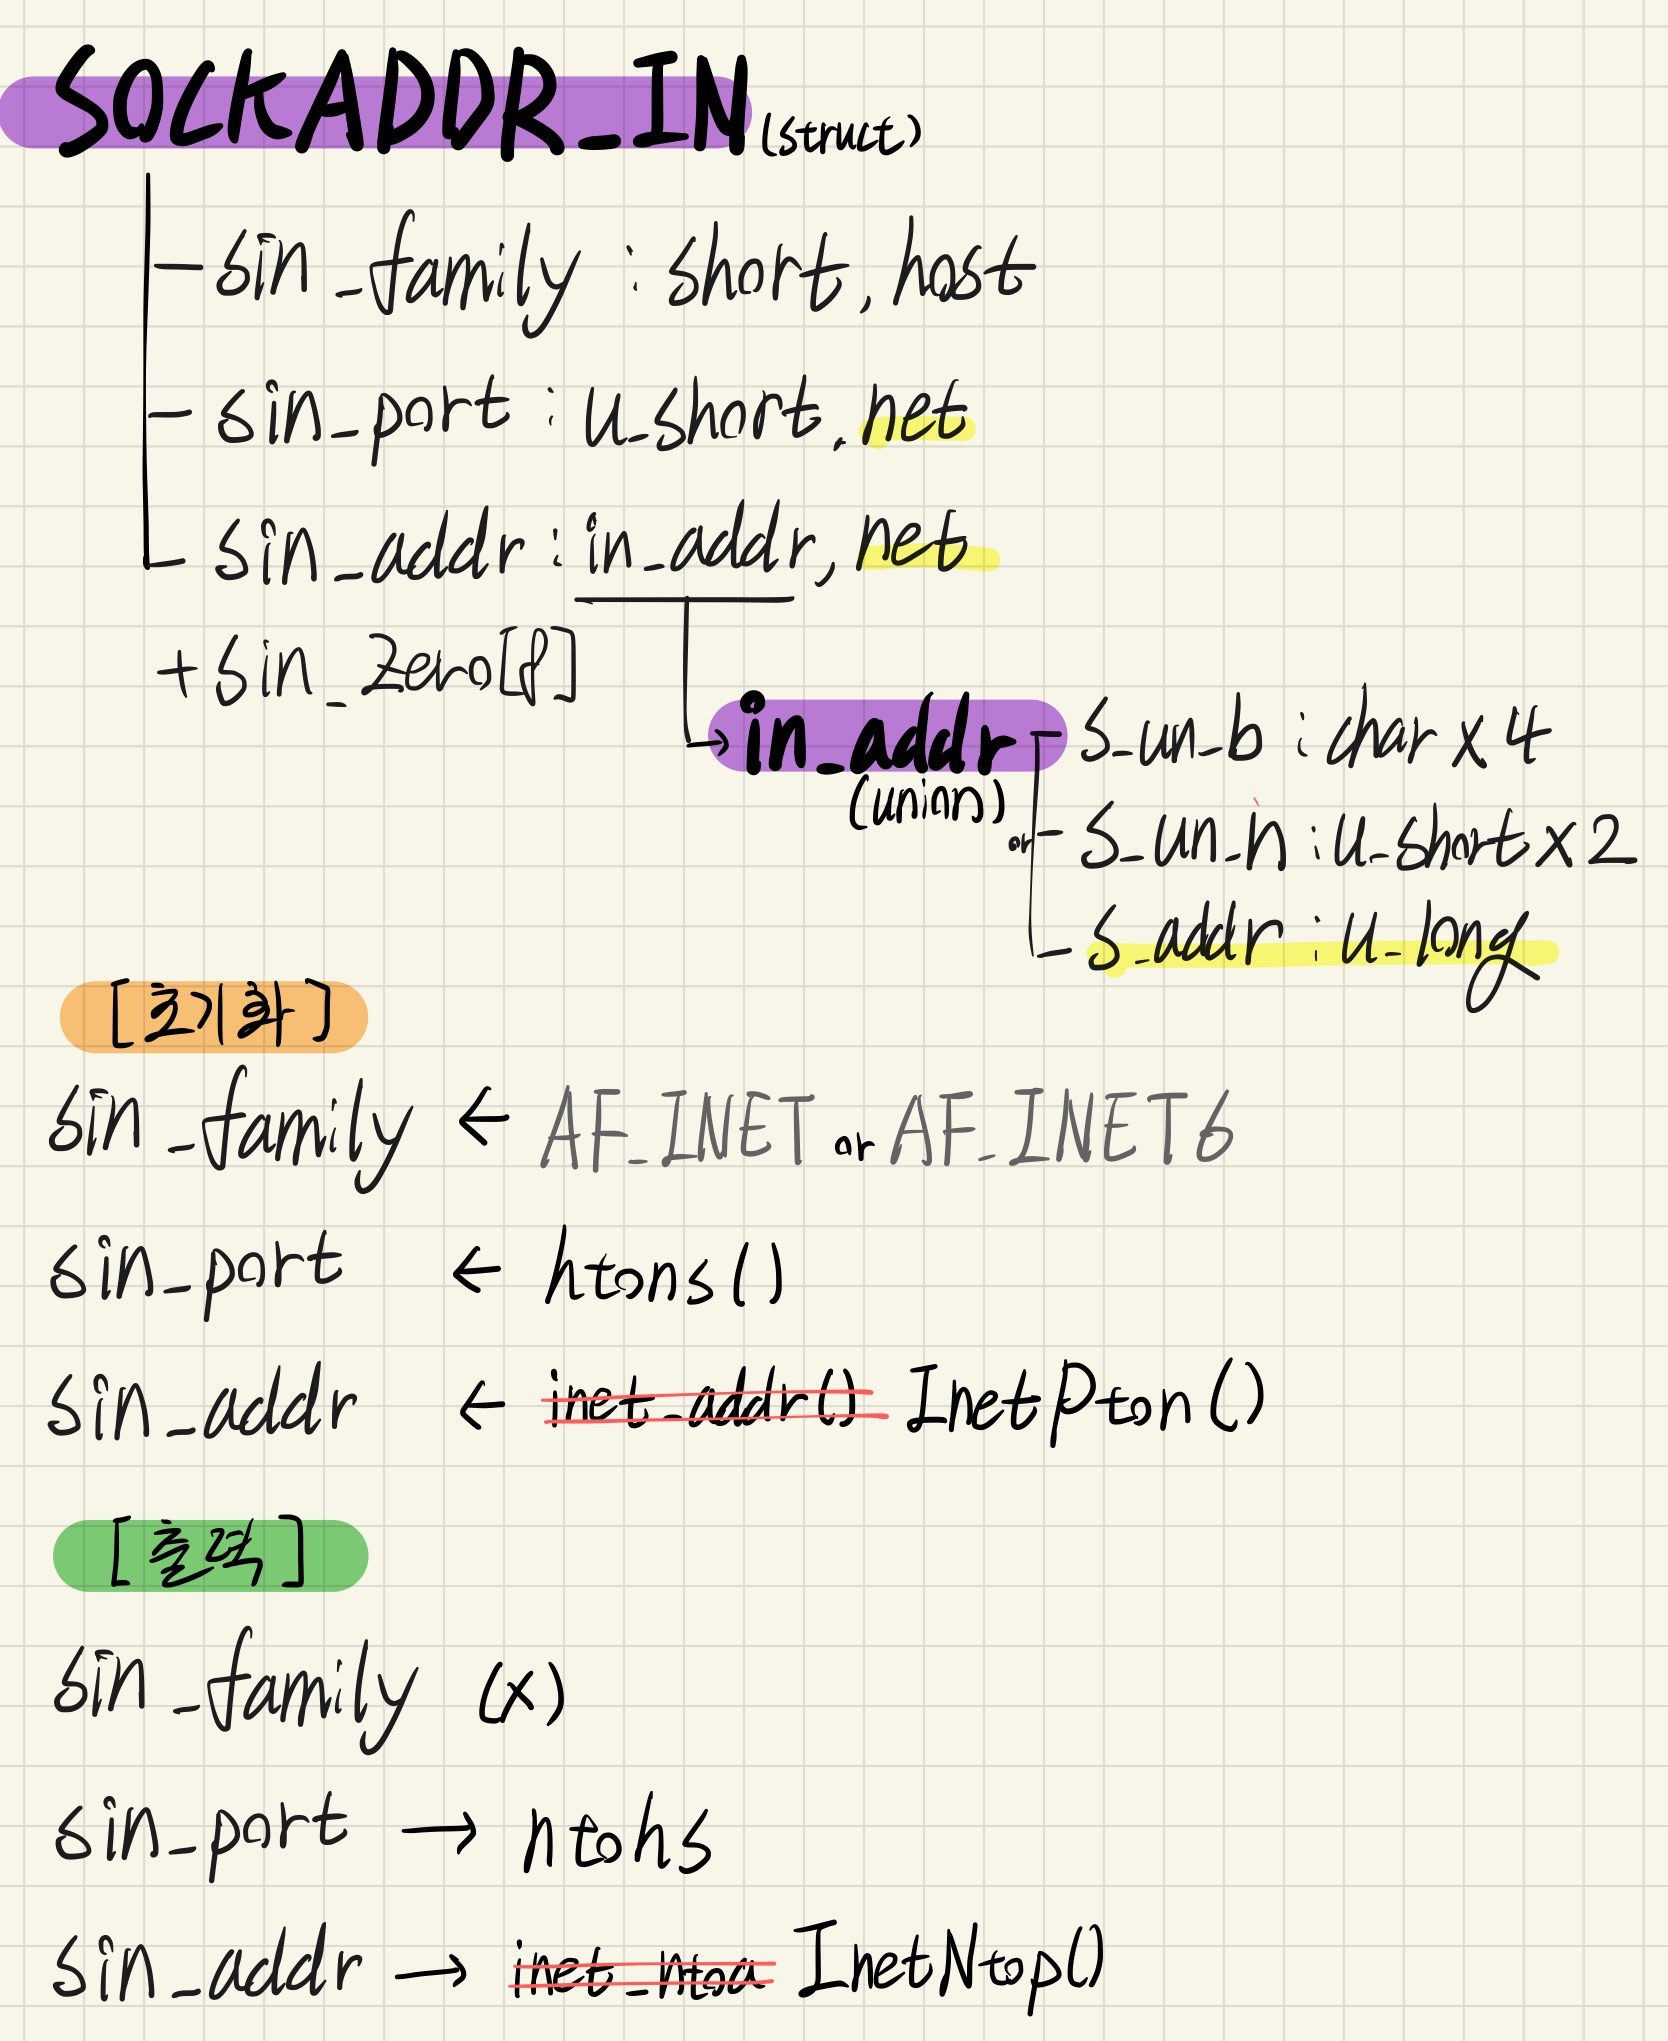 SOCKADDR_IN (struct)
- sin_family : short, host
- sin_port : u_short, net
- sin_addr : in_addr, net
+ sin_zero[8]
→ in_addr - s_un_b : char x 4
(union) or - s_un_n : u_short x 2
- s_addr : u_long
[초기화]
sin_family ← AF_INET or AF_INET6
sin_port ← htons()
sin_addr ← inet_addr() InetPton()
[출력]
sin_family (x)
sin_port → ntohs
sin_addr → inet_ntoa InetNtop()